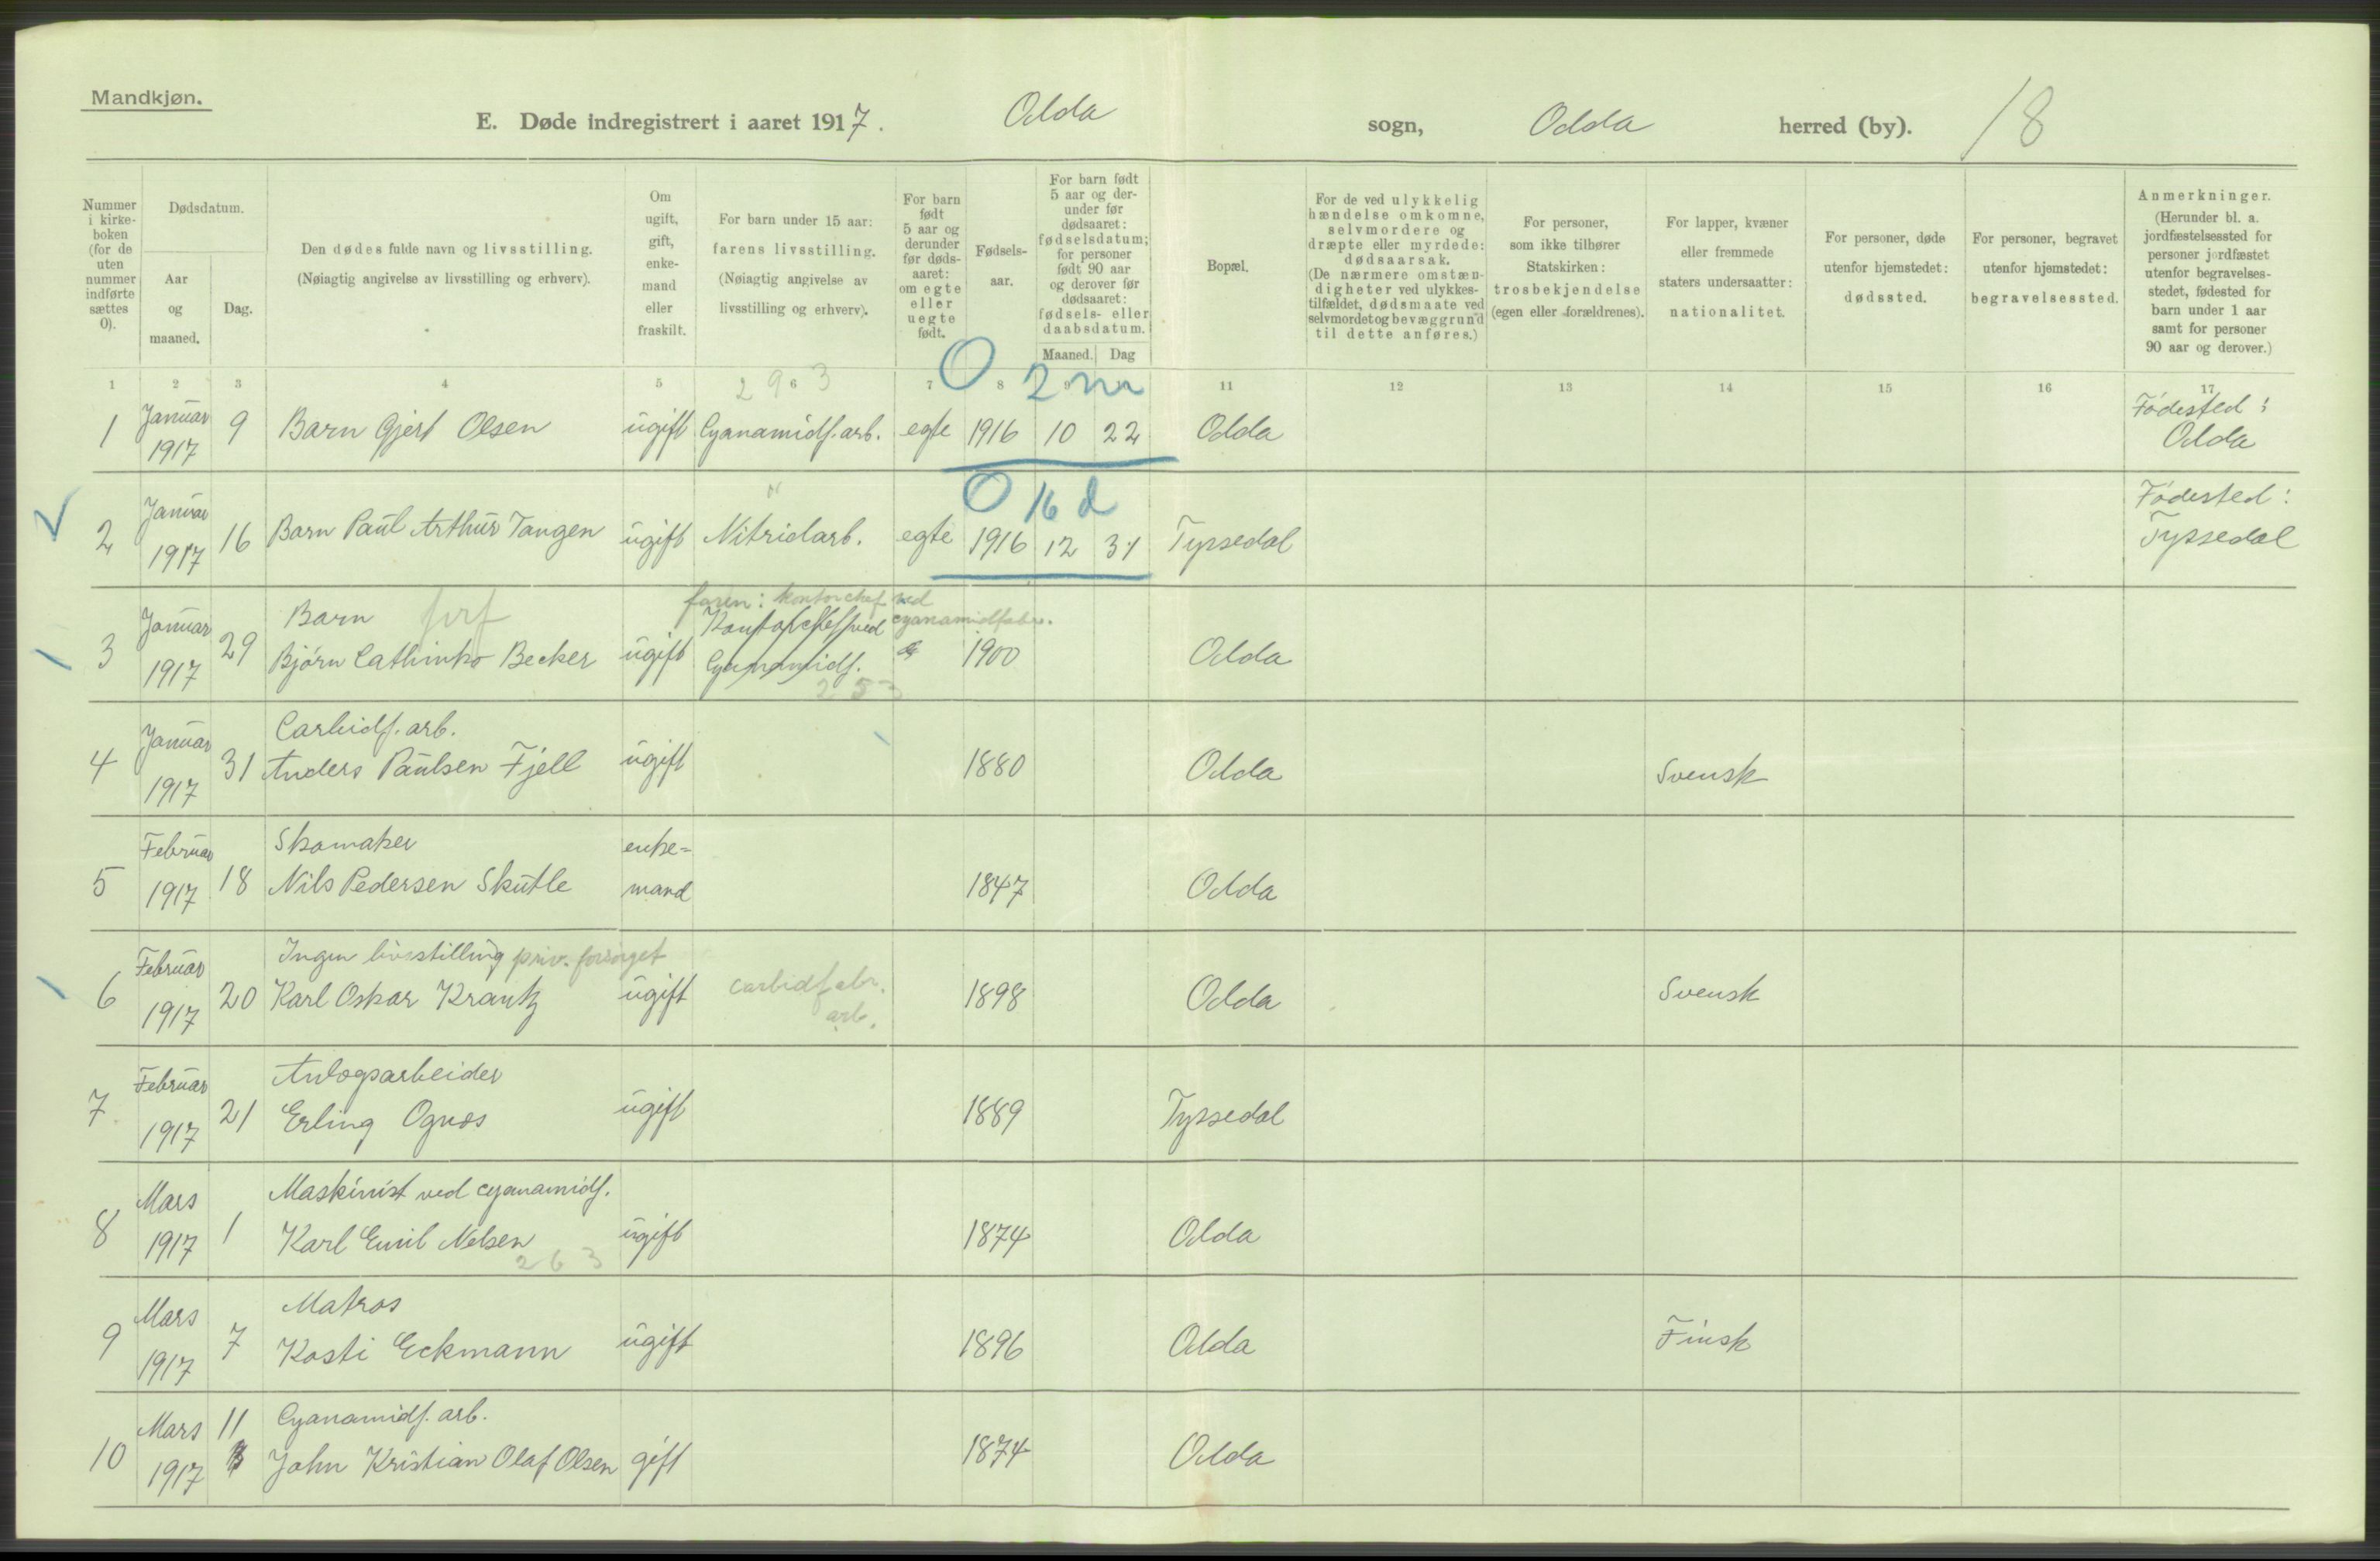 Mandkjøn.
E. Døde indregistrert i aaret 1917. Odda sogn, Odda herred (by). 18
Nummer i kirke- boken (for de uten nummer indførte sættes 0).
Dødsdatum.
Aar og maaned.
Dag.
Den dødes fulde navn og livsstilling.
(Nøiagtig angivelse av livsstilling og erhverv).
Om ugift, gift, enke- mand eller fraskilt.
For barn under 15 aar: farens livsstilling.
(Nøiagtig angivelse av livsstilling og erhverv).
For barn født 5 aar og derunder før døds- aaret: om egte eller uegte født.
Fødsels- aar.
For barn født 5 aar og der- under før dødsaaret: fødselsdatum; for personer født 90 aar og derover før dødsaaret: fødsels- eller daabsdatum.
Maaned. Dag
Bopæl.
For de ved ulykkelig hændelse omkomne, selvmordere og dræpte eller myrdede: dødsaarsak. (De nærmere omstæn- digheter ved ulykkes- tilfældet, dødsmaate ved selvmordet og bevæggrund til dette anføres.)
For personer, som ikke tilhører Statskirken: trosbekjendelse (egen eller forældrenes).
For lapper, kvæner eller fremmede staters undersaatter: nationalitet.
For personer, døde utenfor hjemstedet: dødssted.
For personer, begravet utenfor hjemstedet: begravelsessted.
Anmerkninger. (Herunder bl. a. jordfæstelsessted for personer jordfæstet utenfor begravelses- stedet, fødested for barn under 1 aar samt for personer 90 aar og derover.)
1 2 3 4 5 6 7 8 9 11 12 13 14 15 16 17
293 0 2 m
1 Januar 1917 9 Barn Gjert Olsen ugift Cyanamidf. arb. egte 1916 10 22 Odda Fødested: Odda
0 16 d
2 Januar 1917 16 Barn Paul Arthur Tangen ugift Nitridarb. egte 1916 12 31 Tyssedal Fødested: Tyssedal
faren: kontorchef ved cyanamidfabr.
3 Januar 1917 29 Barn Bjørn Cathinko Becker ugift Kontorchef ved Cyanamidf. 1900 Odda
253
4 Januar 1917 31 Carbidf. arb. Anders Paulsen Fjell ugift 1880 Odda Svensk
5 Februar 1917 18 Skomaker Nils Pedersen Skutle enke= mand 1847 Odda
6 Februar 1917 20 Ingen livsstilling priv. forsørget Karl Oskar Krantz ugift carbidfabr. arb. 1898 Odda Svensk
7 Februar 1917 21 Anlogsarbeider Erling Ognos ugift 1889 Tyssedal
8 Mars 1917 1 Maskinist ved cyanamidf. Karl Emil Nelsen ugift 1874 Odda
263
9 Mars 1917 7 Matros Kosti Eckmann ugift 1896 Odda Finsk
10 Mars 1917 11 Cyanamidf. arb. John Kristian Olaf Olsen gift 1874 Odda